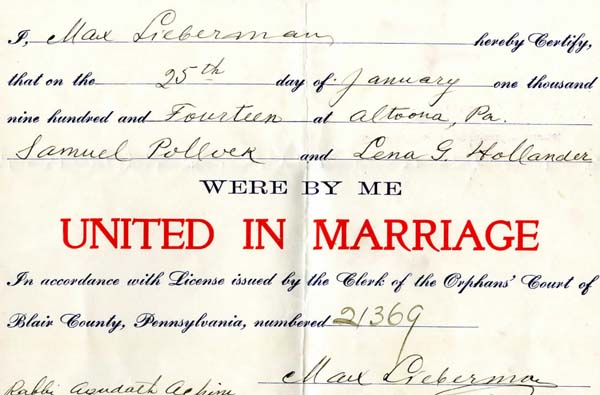 I, Max Lieberman hereby Certify,
that on the 25th day of January one thousand
nine hundred and Fourteen at Altoona, Pa.
Samuel Pollock and Lena G. Hollander
WERE BY ME
UNITED IN MARRIAGE
In accordance with License issued by the Clerk of the Orphans' Court of
Blair County, Pennsylvania, numbered 21369
Max Lieberman
Rabbi Agudath Achim